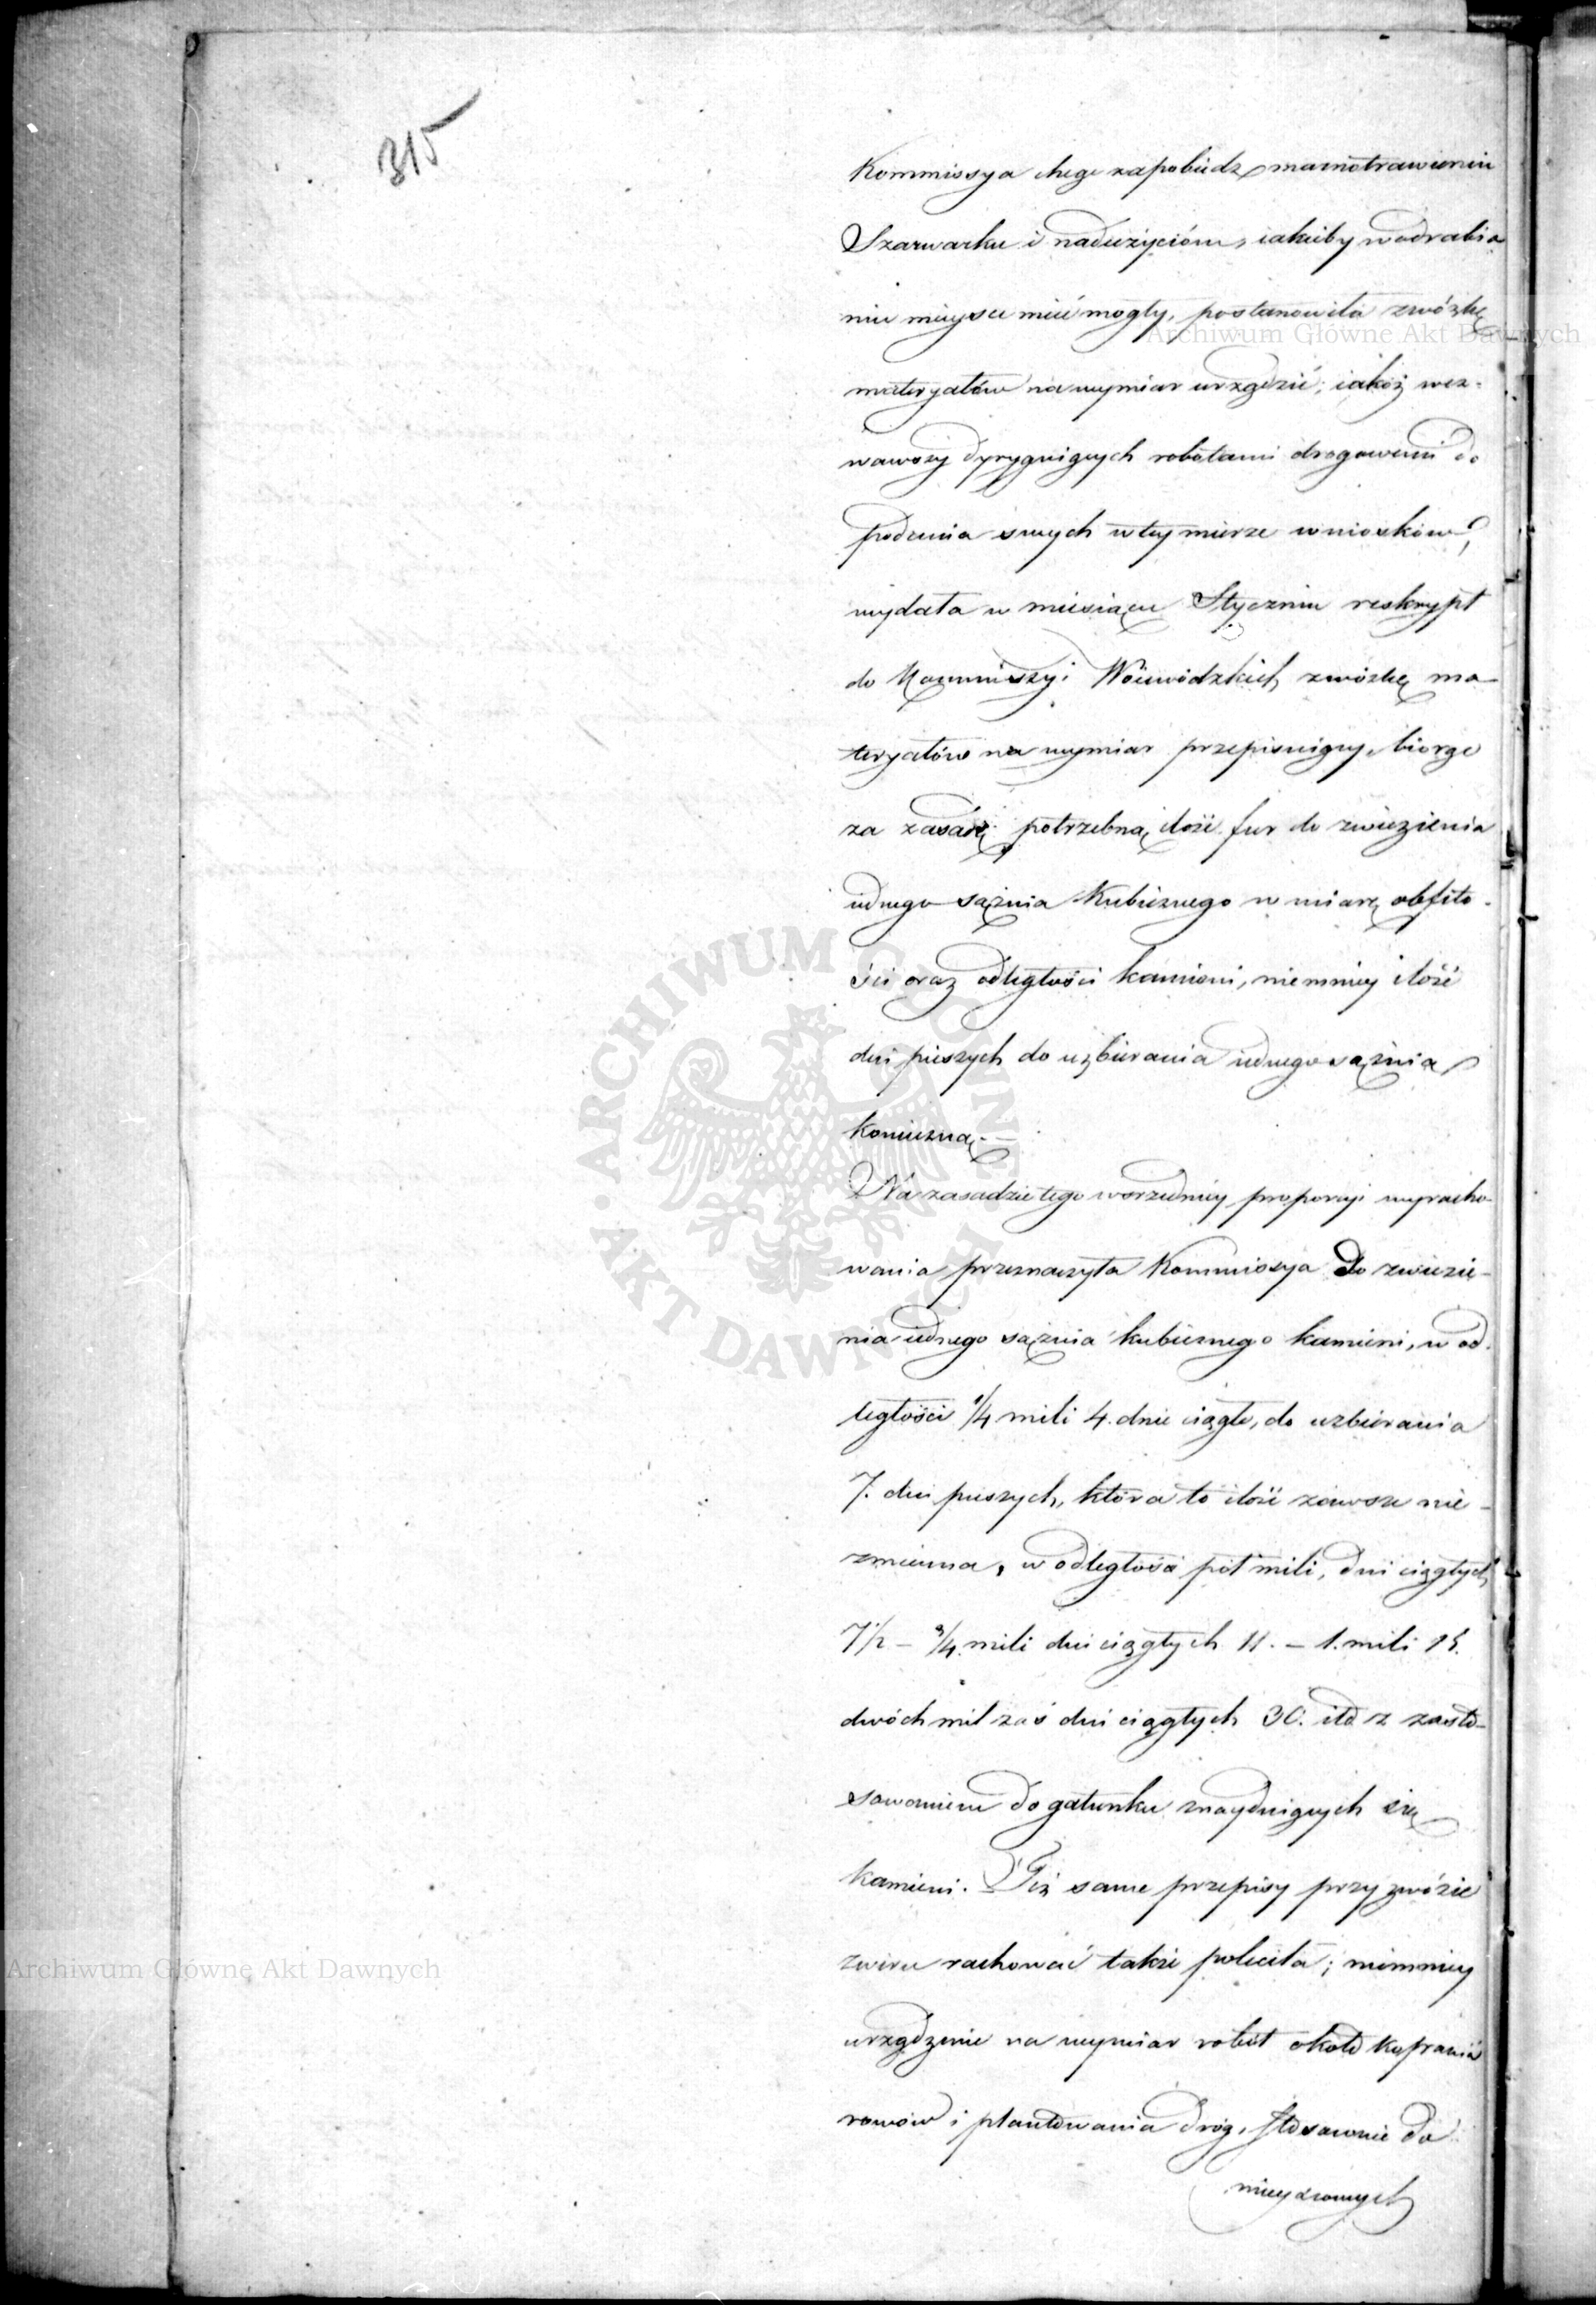 315
Kommissya chcąc zapobiedz marnotrawieniu
Szarwarku i nadużyciom, iakieby w odrabia
niu mieysce mieć mogły, postanowiła zwózkę
materyałów na wymiar urządzić; iakoż wez-
wawszy dyryguiących robotami drogowemi do
podania swych w tey mierze wniosków,
wydała w miesiącu Styczniu reskrypt
do Kommissyi Woiewódzkich zwózkę ma-
teryałów na wymiar przepisuiący, biorąc
za zasadę potrzebną ilość fur do zwiezienia
iednego sążnia Kubicznego w miarę obfito-
ści oraz odległości kamieni, niemniey ilość
dni pieszych do uzbierania iednego sążnia
konieczną.—
Na zasadzie tego w średniey proporcyi wyracho-
wania przeznaczyła Kommissya do zwiezie-
nia iednego sążnia kubicznego kamieni, w od-
ległości 1/4 mili 4. dnie ciągłe, do uzbierania
7. dni pieszych, która to ilość zawsze nie-
zmienna, w odległości pół mili, dni ciągłych
7 1/2 – 3/4 mili dni ciągłych 11. – 1. mili 15.
dwóch mil zaś dni ciągłych 30. itd z zasto-
sowaniem do gatunku znayduiących się
kamieni. Też same przepisy przy zwózie
żwiru rachować także poleciła; niemniey
urządzenie na wymiar robót około kopania
rowów i plantowania dróg, stosownie do
mieyscowych
Archiwum Główne Akt Dawnych
Archiwum Główne Akt Dawnych
ARCHIWUM GŁÓWNE AKT DAWNYCH